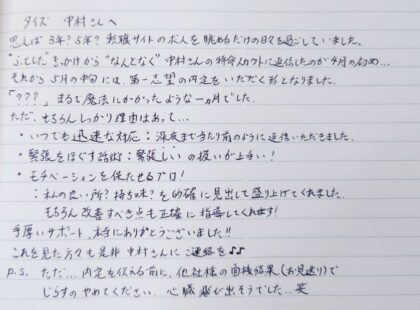 タイズ 中村さんへ
思えば3年?5年? 転職サイトの求人を眺めるだけの日々を過ごしていました。
"ふとした"きっかけから"なんとなく"中村さんの特命スカウトに返信したのが4月の初め…
それから5月の中旬には、第一志望の内定をいただく形となりました。
「???」まるで魔法にかかったような一ヵ月でした。
ただ、もちろんしっかり理由はあって…
・いつでも迅速な対応:深夜まで当たり前のように返信いただきました。
・緊張をほぐす話術:緊張しいの扱いが上手い!
・モチベーションを保たせるプロ!
:私の良い所?持ち味?を的確に見出して盛り上げてくれました。
もちろん改善すべき点も正確に指導してくれます!
手厚いサポート、本当にありがとうございました!!
これを見た方々も是非 中村さんにご連絡を♪♪
P.S. ただ…内定を伝える前に、他社様の面接結果(お見送り)で
じらすのやめてください、心臓飛び出そうでした…笑